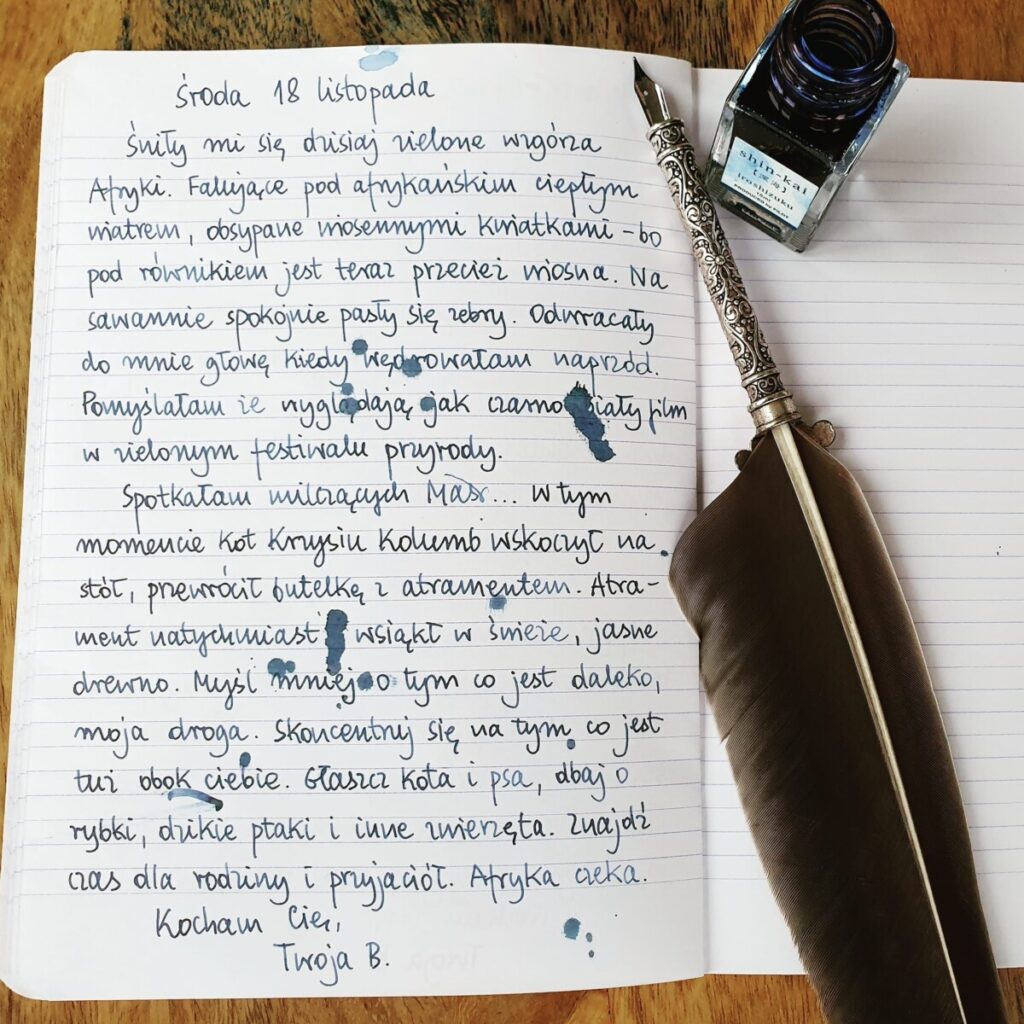 Środa 18 listopada
Śniły mi się dzisiaj zielone wzgórza
Afryki. Falujące pod afrykańskim ciepłym
wiatrem, obsypane wiosennymi kwiatkami - bo
pod równikiem jest teraz przecież wiosna. Na
sawannie spokojnie pasły się zebry. Odwracały
do mnie głowę kiedy wędrowałam naprzód.
Pomyślałam że wyglądają, jak czarno biały film
w zielonym festiwalu przyrody.
Spotkałam milczących Mas... W tym
momencie kot Krzysiu Kolumb wskoczył na
stół, przewrócił butelkę z atramentem. Atra-
ment natychmiast wsiąkł w świeże, jasne
drewno. Myśl mniej o tym co jest daleko,
moja droga. Skoncentruj się na tym co jest
tuż obok ciebie. Głaszcz kota i psa, dbaj o
rybki, dzikie ptaki i inne zwierzęta. Znajdź
czas dla rodziny i przyjaciół. Afryka czeka.
Kocham Cię,
Twoja B.
shin-kai
[深海]
iroshizuku